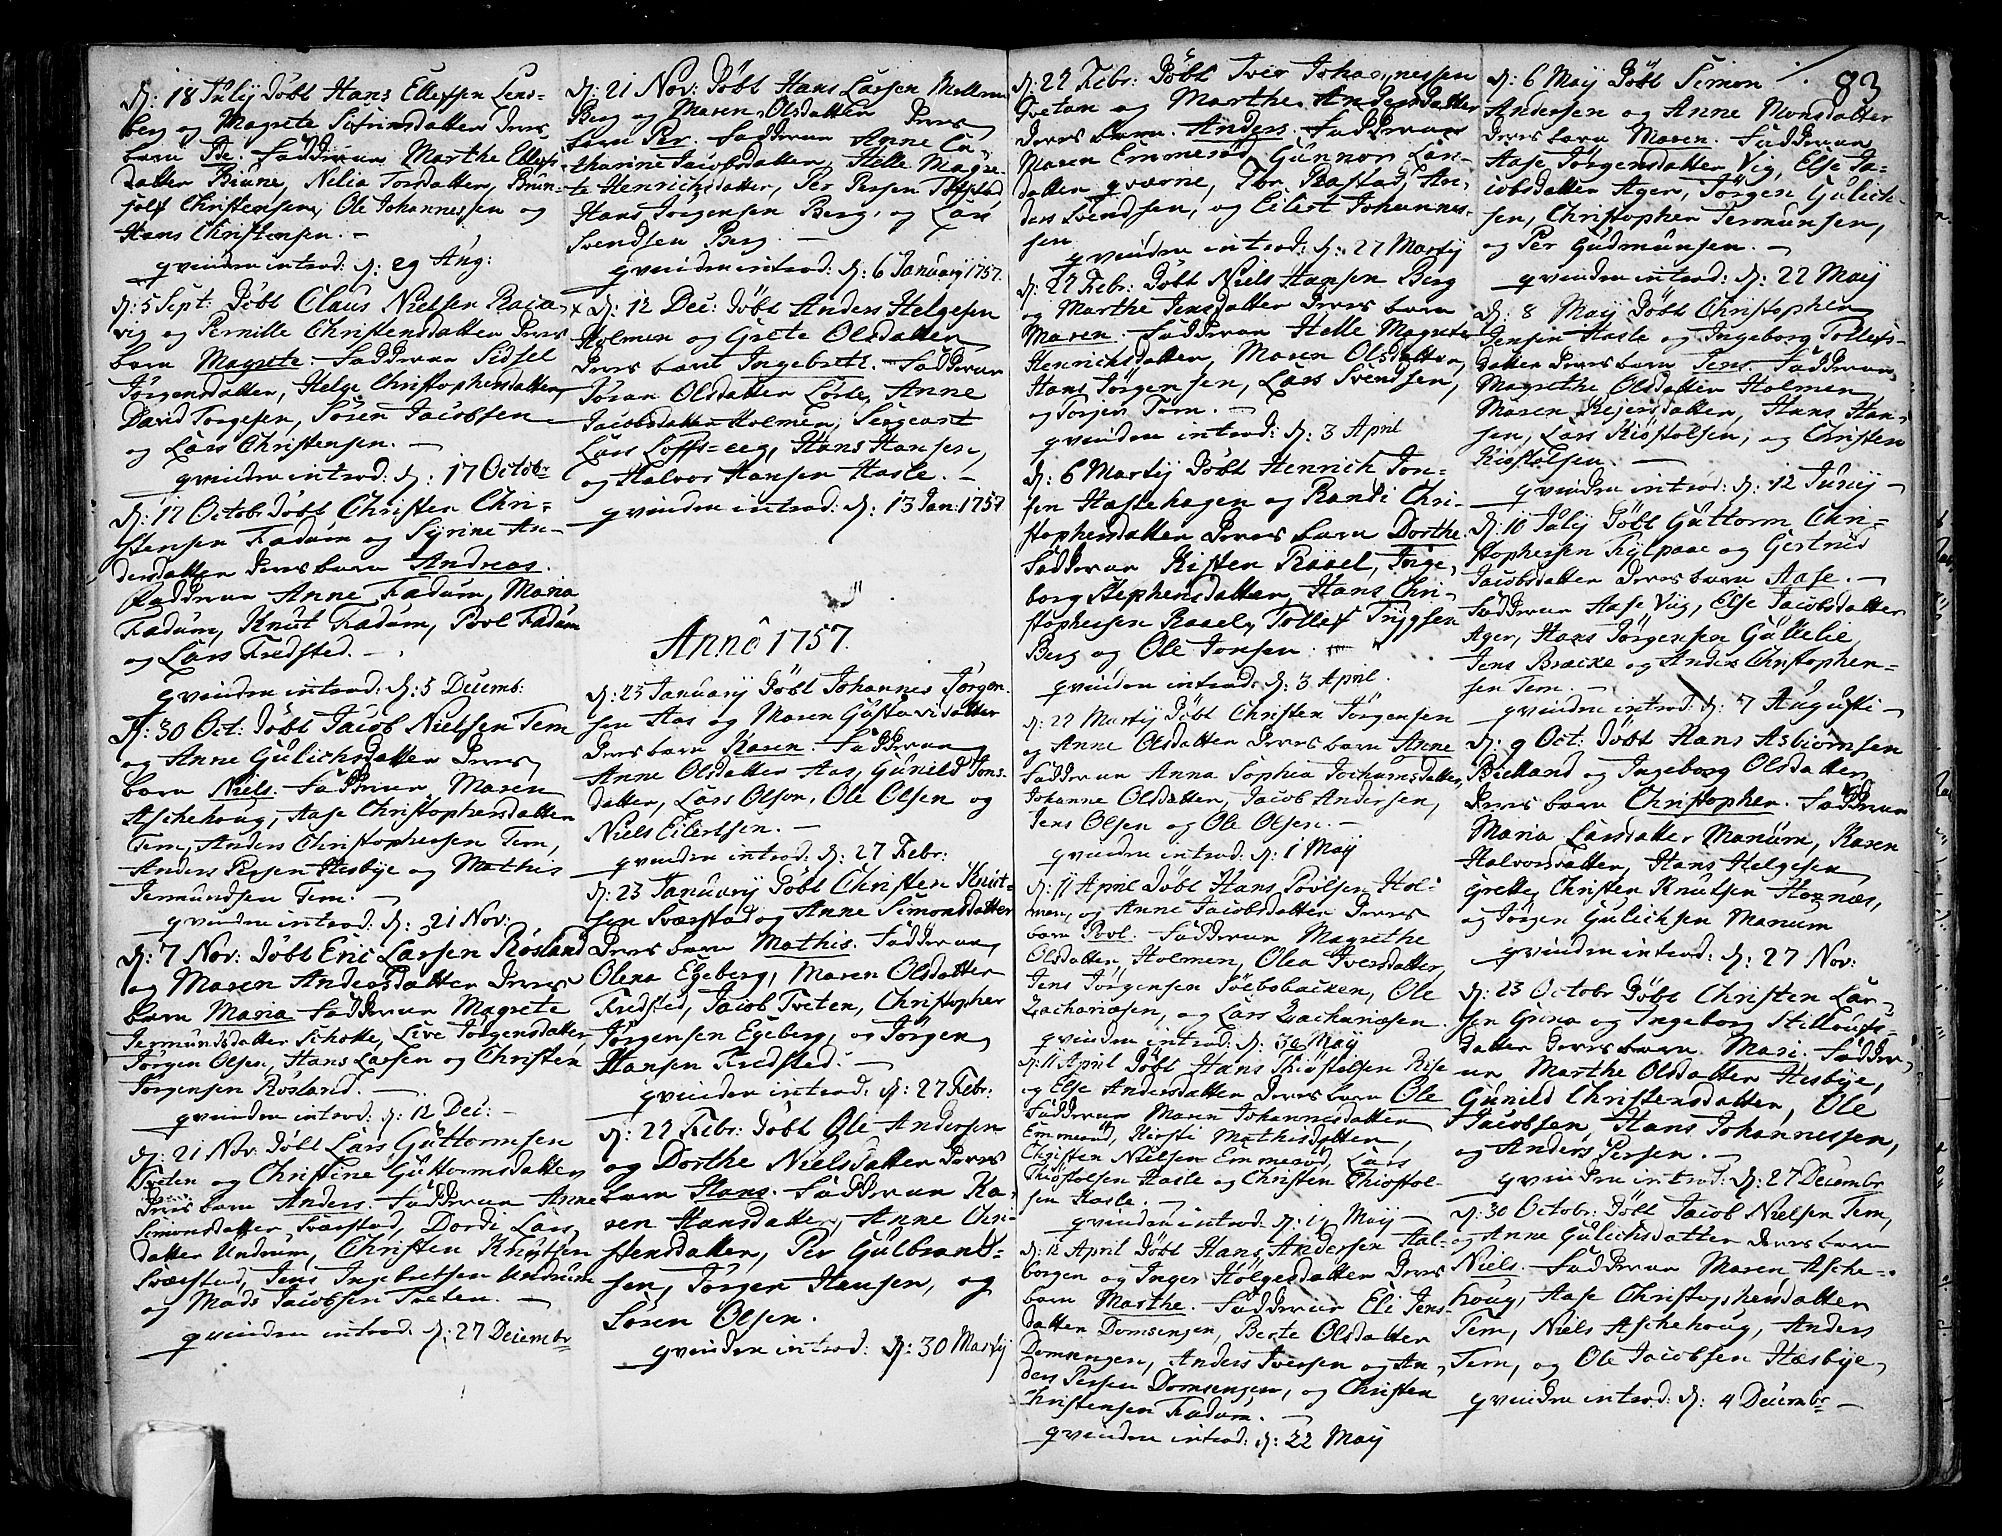 d: 18 July Döbt Hans Ellefsen Lens=
berg og Magrete Sörinsdatter Deres
barn Pe. Fadderne Marthe Ellefs
datter Biune, Nilia Torsdatter, Brun=
jolf Christensen, Ole Johannessen og
Hans Christensen. —
qvinden introd: d: 29 Aug:
d: 5 Sept: Döbt Claus Nielsen
vig og Pernille Christensdatter Deres
barn Magrete. Fadderne Sidsel
Jörgensdatter, Helge Christophersdatter,
David Torgesen, Sören Jacobsen
og Lars Christensen. —
qvinden introd: d: 17 Octobr
d: 17 Octobr Döbt Christen Chri=
stensen Fadum og Syrine An=
dersdatter Deres barn Andreas.
Fadderne Anne Fadum, Maria
Fadum, Knut Fadum, Povl Fadum
og Lars Fredsted. —
qvinden introd: d: 5 Decemb:
d: 30 Oct: Döbt Jacob Nielsen Tem
og Anne Gulichsdatter Deres
barn Niels. Fadderne Maren
Aschehoug, Aase Christophersdatter
Tem, Anders Christophersen Tem,
Anders Persen Hesbye og Mathis
Jermundsen Tem. —
qvinden introd: d: 21 Nov:
d: 7 Nov: Döbt Eric Larsen Rösland
og Maren Andersdatter Deres
barn Maria Fadderne Magrete
Jermundsdatter Schotte, Live Jörgensdatter
Jörgen Olsen, Hans Larsen og Christen
Jörgensen Rösland. —
qvinden introd: d: 12 Dec: —
d: 21 Nov: Döbt Lars Guttormsen
Tveten og Christine Guttormsdatter
Deres barn Anders. Fadderne Anne
Simonsdatter Svarstad, Dordi Lars
datter Undrum, Christen Knutsen
Svarstad, Jens Ingebretsen Undrum
og Mads Jacobsen Tveten. —
qvinden introd: d: 27 Decembr
d: 21 Nov: Döbt Hans Larsen Mellem
Berg og Maren Olsdatter Deres
barn Per. Fadderne Anne Ca=
tharine Jacobsdatter, Helle Magre=
te Henrichsdatter, Per Persen
Hans Jörgensen Berg, og Lars
Svendsen Berg. —
qvinden introd: d: 6 January 1757.
x d: 12 Dec: Döbt Anders Helgesen
Holmen og Grete Olsdatter
Deres barn Ingebret. Fadderne
Joran Olsdatter Löste, Anne
Jacobsdatter Holmen, Sergeant
Lars Löffs=eeg, Hans Hansen,
og Halvor Hansen Hasle. —
qvinden introd: d: 13 Jan: 1757
Anno 1757.
d: 23 January Döbt Johannes Jörgen=
sen Aas og Maren Gustavsdatter
Deres barn Karen. Fadderne
Anne Olsdatter Aas, Gunild Jons=
datter, Lars Olsen, Ole Olsen og
Niels Eilertsen. —
qvinden introd: d: 27 Febr:
d: 23 January Döbt Christen Knut=
sen Svarstad og Anne Simonsdatter
Deres barn Mathis. Fadderne
Olena Egeberg, Maren Olsdatter
Fredsted, Jacob Tveten, Christopher
Jörgensen Egeberg, og Jörgen
Hansen Fredsted. —
qvinden introd: d: 27 Febr:
d: 22 Febr: Döbt Ole Andersen
og Dorthe Nielsdatter Deres
barn Hans. Fadderne Ka=
ren Hansdatter, Anne Chri=
stensdatter, Per Gulbrand=
sen, Jörgen Hansen, og
Sören Olsen.
qvinden introd: d: 30 Martij
d: 22 Febr: Döbt Iver Johannessen
Tvetan og Marthe Andersdatter
Deres barn Anders. Fadderne
Maren Emmeröd, Gunnor Lars=
datter qværne, Tor Rastad, An=
ders Svendsen, og Eilert Johannes=
sen
qvinden introd: d: 27 Martij
d: 22 Febr: Döbt Niels Hansen Berg
og Marthe Jensdatter Deres barn
Maren. Fadderne Helle Magrete
Henrichsdatter, Maren Olsdatter,
Hans Jörgensen, Lars Svendsen,
og Torger Tem. —
qvinden introd: d: 3 April
d: 6 Martij Döbt Henrich Jon=
sen Hastehagen og Randi Chri=
stophersdatter Deres barn Dorthe.
Fadderne Kisten Raael, Inge=
borg Stephensdatter, Hans Chri=
stophersen Raael, Tollef Tryggsen
Berg og Ole Jonsen. —
qvinden introd: d: 3 April.
d: 22 Martij Döbt Christen Jörgensen
og Anne Olsdatter Deres barn Anne
Fadderne Anna Sophia Jochumsdatter,
Johanne Olsdatter, Jacob Andersen,
Jens Olsen og Ole Olsen. —
qvinden introd: d: 1 May
d: 11 April Döbt Hans Povlsen Hol=
men, og Anne Jacobsdatter Deres
barn Povl. Fadderne Magrethe
Olsdatter Holmen, Olea Iversdatter,
Jens Jörgensen Söebsbacken, Ole
Zachariæsen, og Lars Zachariæsen
qvinden introd: d: 30 May
d: 11 April Döbt Hans Thiöstolsen Rise
og Else Andersdatter Deres barn Ole
Fadderne Maren Johannesdatter
Emmeröd, Kirsti Mathisdatter,
Christen Nielsen Emmeröd, Lars
Thiöstolsen Hasle og Christen Thiostol=
sen Hasle. —
qvinden introd: d: 12 May —
d: 11 April Döbt Hans Andersen Aal=
borgen og Inger Hölgesdatter Deres
barn Marthe. Fadderne Eli Jens=
datter Domsengen, Berte Olsdatter
Domsengen, Anders Iversen og An=
ders Persen Domsengen, og Christen
Christensen Fadum. —
qvinden introd: d: 22 May
83
d: 6 May Döbt Simon
Andersen og Anne Monsdatter
Deres barn Maren. Fadderne
Aase Jörgensdatter Vig, Else Ja=
cobsdatter Ager, Jörgen Gulich=
sen, Christopher Jermunsen,
og Per Gudmunsen. —
qvinden introd: d: 22 May
d: 8 May Döbt Christopher
Jensen Hasle og Ingeborg Tollefs=
datter Deres barn Jens. Fadderne
Magrethe Olsdatter Holmen
Maren Rejersdatter, Hans Han=
sen, Lars Kiöstolsen, og Christen
Kiöstolsen. —
qvinden introd: d: 12 Junij —
d: 10 July Döbt Guttorm Chri=
stophersen Fylpaae og Gertrud
Jacobsdatter Deres barn Aase. —
Fadderne Aase Viig, Else Jacobsdatter
Ager, Hans Jörgensen Gullelie,
Jens Bracke og Anders Christophen=
sen Tem. —
qvinden introd: d: 7 Augusti —
d: 9 Oct: Döbt Hans Asbiörnsen
Bielland og Ingeborg Olsdatter
Deres barn Christopher. Fadderne
Maria Larsdatter Manum, Karen
Halvorsdatter, Hans Helgesen
Grette, Christen Knutsen Hornæs,
og Jörgen Gulichsen Manum
qvinden introd: d: 27 Nov:
d: 23 Octobr Döbt Christen Lar=
sen Grina og Ingeborg Stillaufs=
datter Deres barn Mari. Fadder=
ne Marthe Olsdatter Hesbye,
Gunild Christensdatter, Ole
Jacobsen, Hans Johannessen,
og Anders Persen. —
qvinden introd: d: 27 Decembr
d: 30 Octobr: Döbt Jacob Nielsen Tem,
og Anne Gulichsdatter Deres barn
Niels. Fadderne Maren Asche=
houg, Aase Christophersdatter
Tem, Niels Aschehoug, Anders
Tem, og Ole Jacobsen Hæsbye,
qvinden introd: d: 4 Decembr —